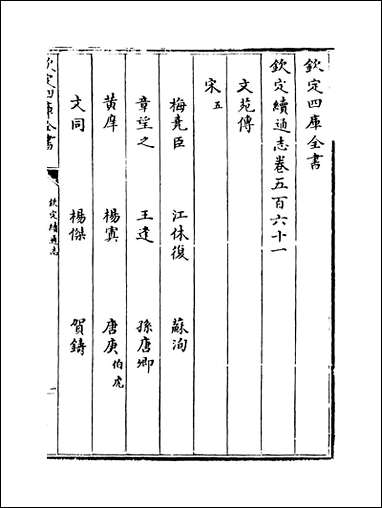 欽定四庫全書
欽定續通志卷五百六十一
文苑傳
宋五
梅堯臣 江休復 蘇洵
章望之 王逢 孫唐卿
黄庠 楊寘 唐庚伯虎
文同 楊傑 賀鑄
欽定四庫全書
欽定續通志
一